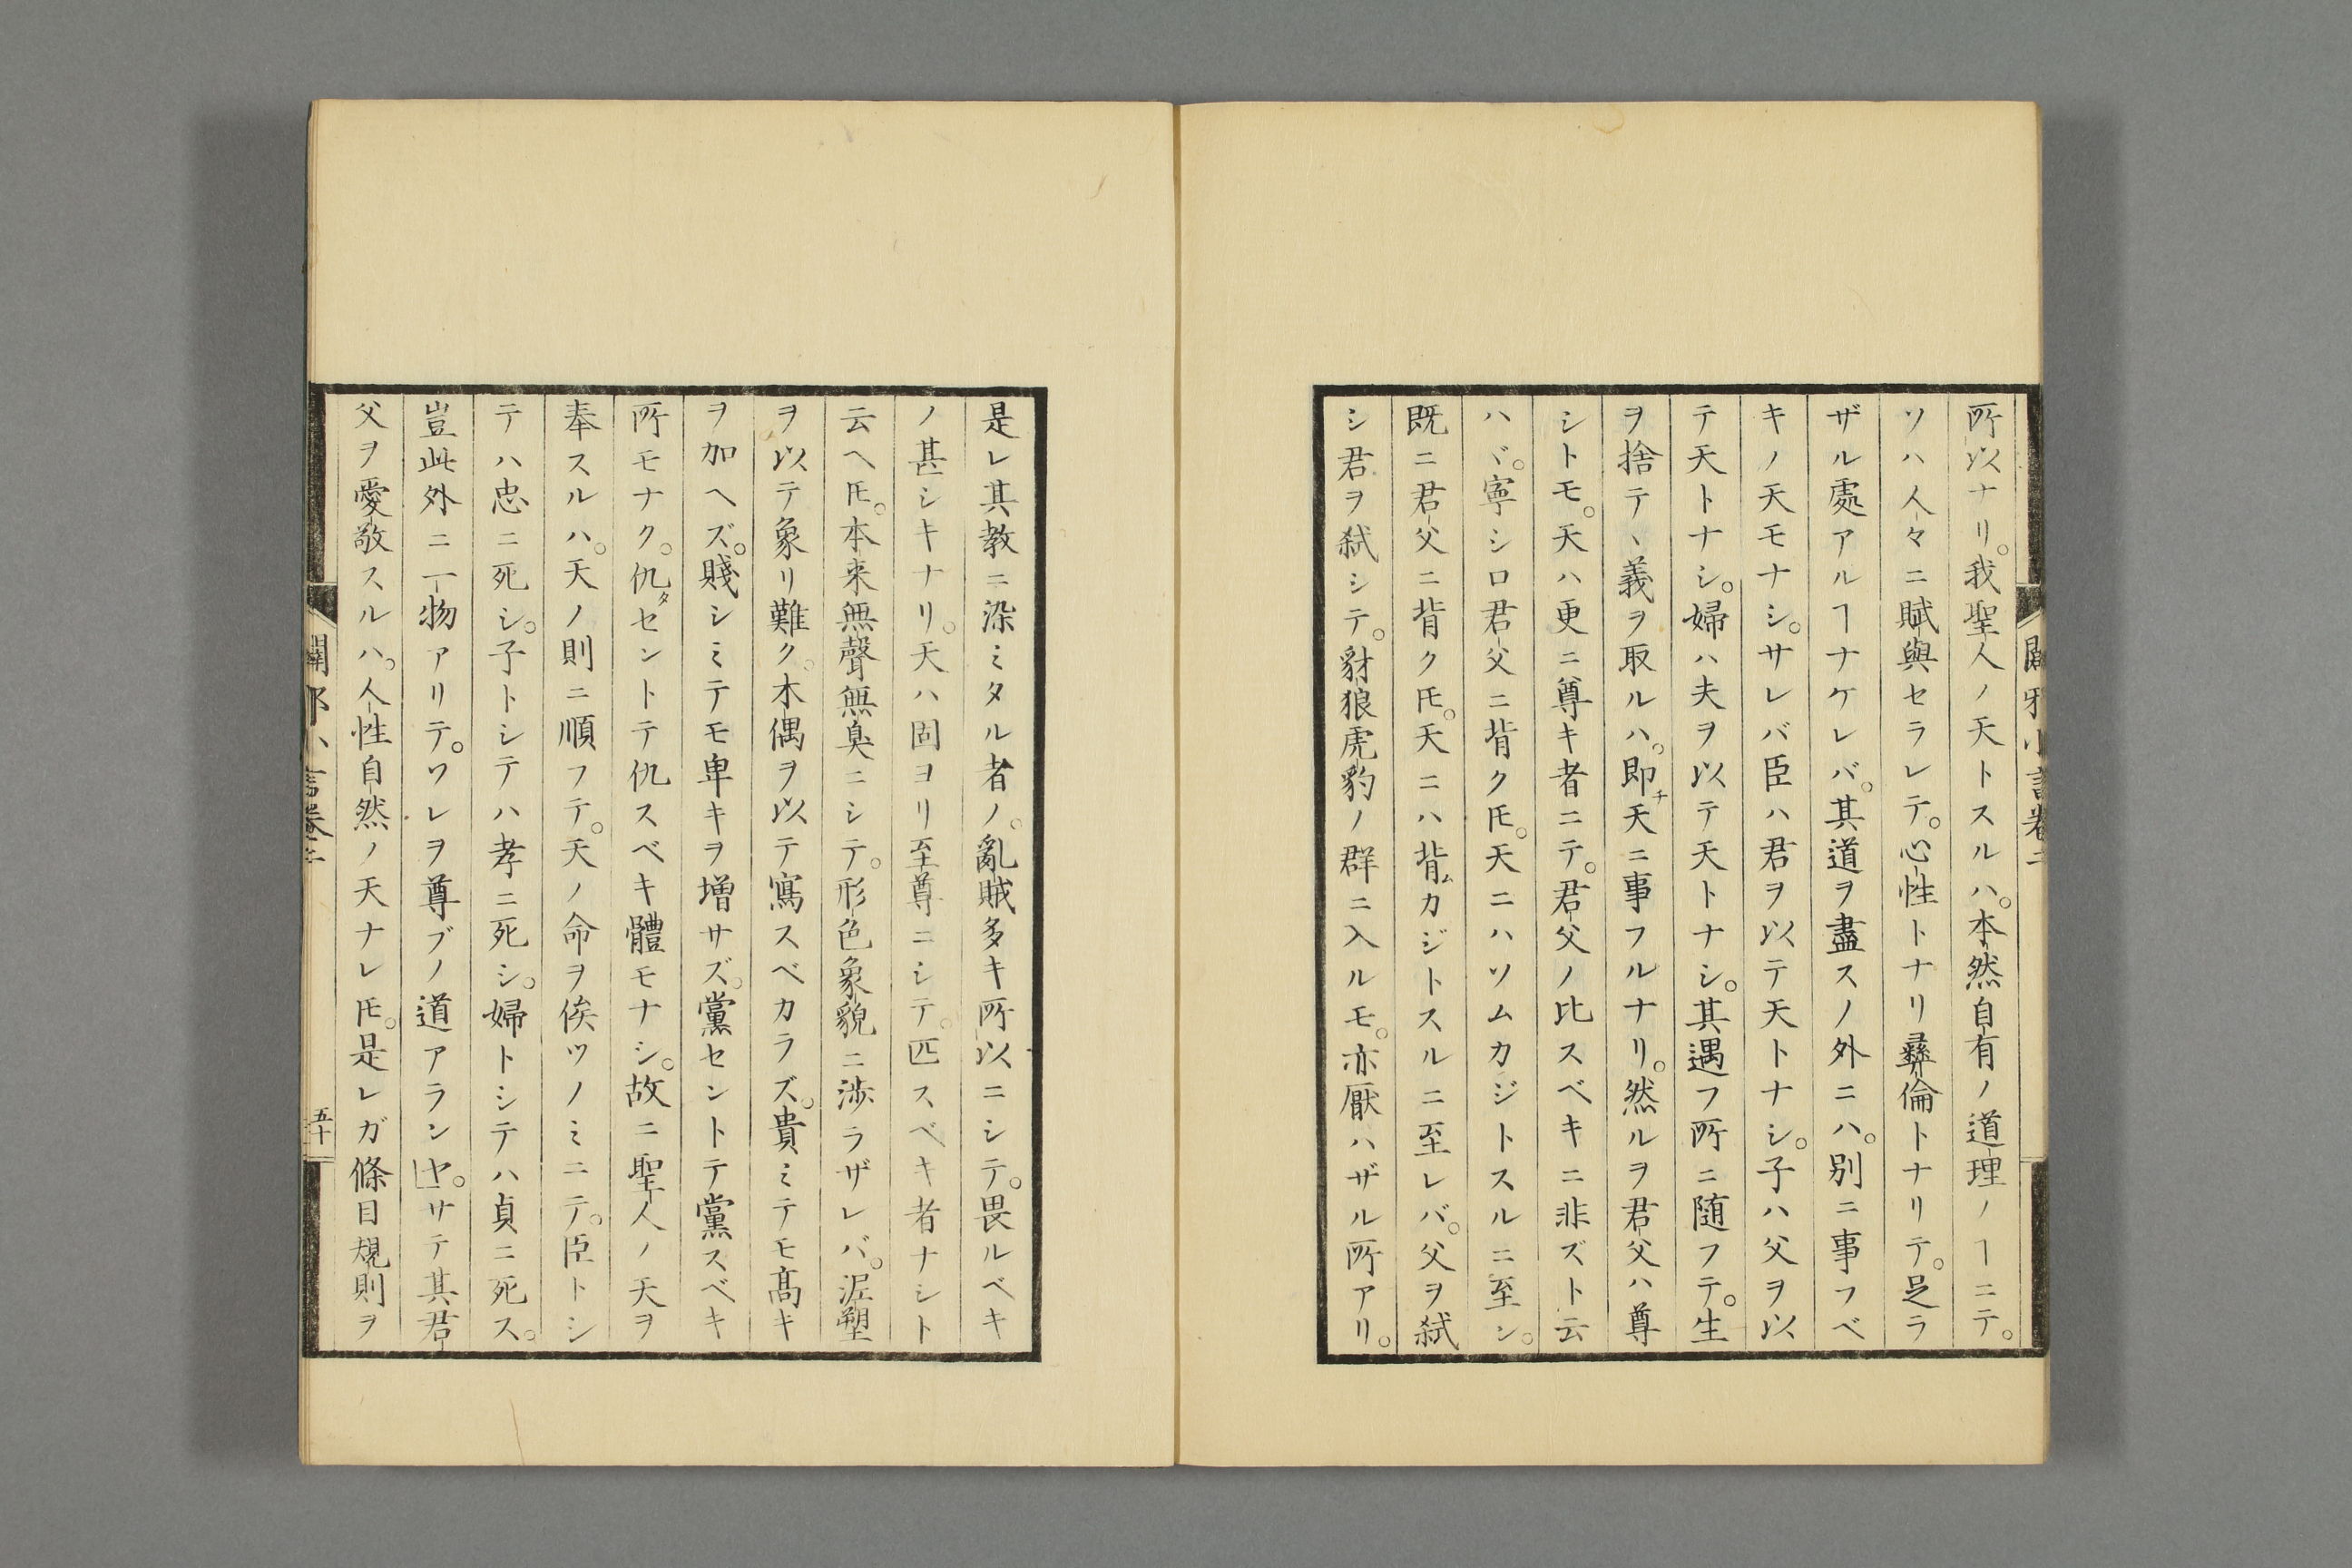 所以ナリ。我聖人ノ天トスルハ。本然自有ノ道理ノヿニテ。
ソハ人々ニ賦與セラレテ。心性トナリ彛倫トナリテ。足ラ
ザル處アルヿナケレバ。其道ヲ盡スノ外ニハ。別ニ事フベ
キノ天モナシ。サレバ臣ハ君ヲ以テ天トナシ。子ハ父ヲ以
テ天トナシ。婦ハ夫ヲ以テ天トナシ。其遇フ所ニ随フテ。生
ヲ捨テヽ義ヲ取ルハ。即チ天ニ事フルナリ。然ルヲ君父ハ尊
シトモ。天ハ更ニ尊キ者ニテ。君父ノ比スベキニ非ズト云
ハヾ。寧シロ君父ニ背ク𪜈。天ニハソムカジトスルニ至ン。
既ニ君父ニ背ク𪜈。天ニハ背ムカジトスルニ至レバ。父ヲ弑
シ君ヲ弑シテ。豺狼虎豹ノ群ニ入ルモ。亦厭ハザル所アリ。
闢邪小言卷二
是レ其教ニ染ミタル者ノ。亂賊多キ所以ニシテ。畏ルベキ
ノ甚シキナリ。天ハ固ヨリ至尊ニシテ。匹スベキ者ナシト
云ヘ𪜈。本来無聲無臭ニシテ。形色象貌ニ渉ラザレバ。泥塑
ヲ以テ象リ難ク。木偶ヲ以テ寫スベカラズ。貴ミテモ髙キ
ヲ加ヘズ。賤シミテモ卑キヲ増サズ。黨セントテ黨スベキ
所モナク。仇タセントテ仇スベキ體モナシ。故ニ聖人ノ天ヲ
奉スルハ。天ノ則ニ順フテ。天ノ命ヲ俟ツノミニテ。臣トシ
テハ忠ニ死シ。子トシテハ孝ニ死シ。婦トシテハ貞ニ死ス。
豈此外ニ一物アリテ。ワレヲ尊ブノ道アランヤ。サテ其君
父ヲ愛敬スルハ。人性自然ノ天ナレ𪜈。是レガ條目規則ヲ
闢邪小言卷二
五十